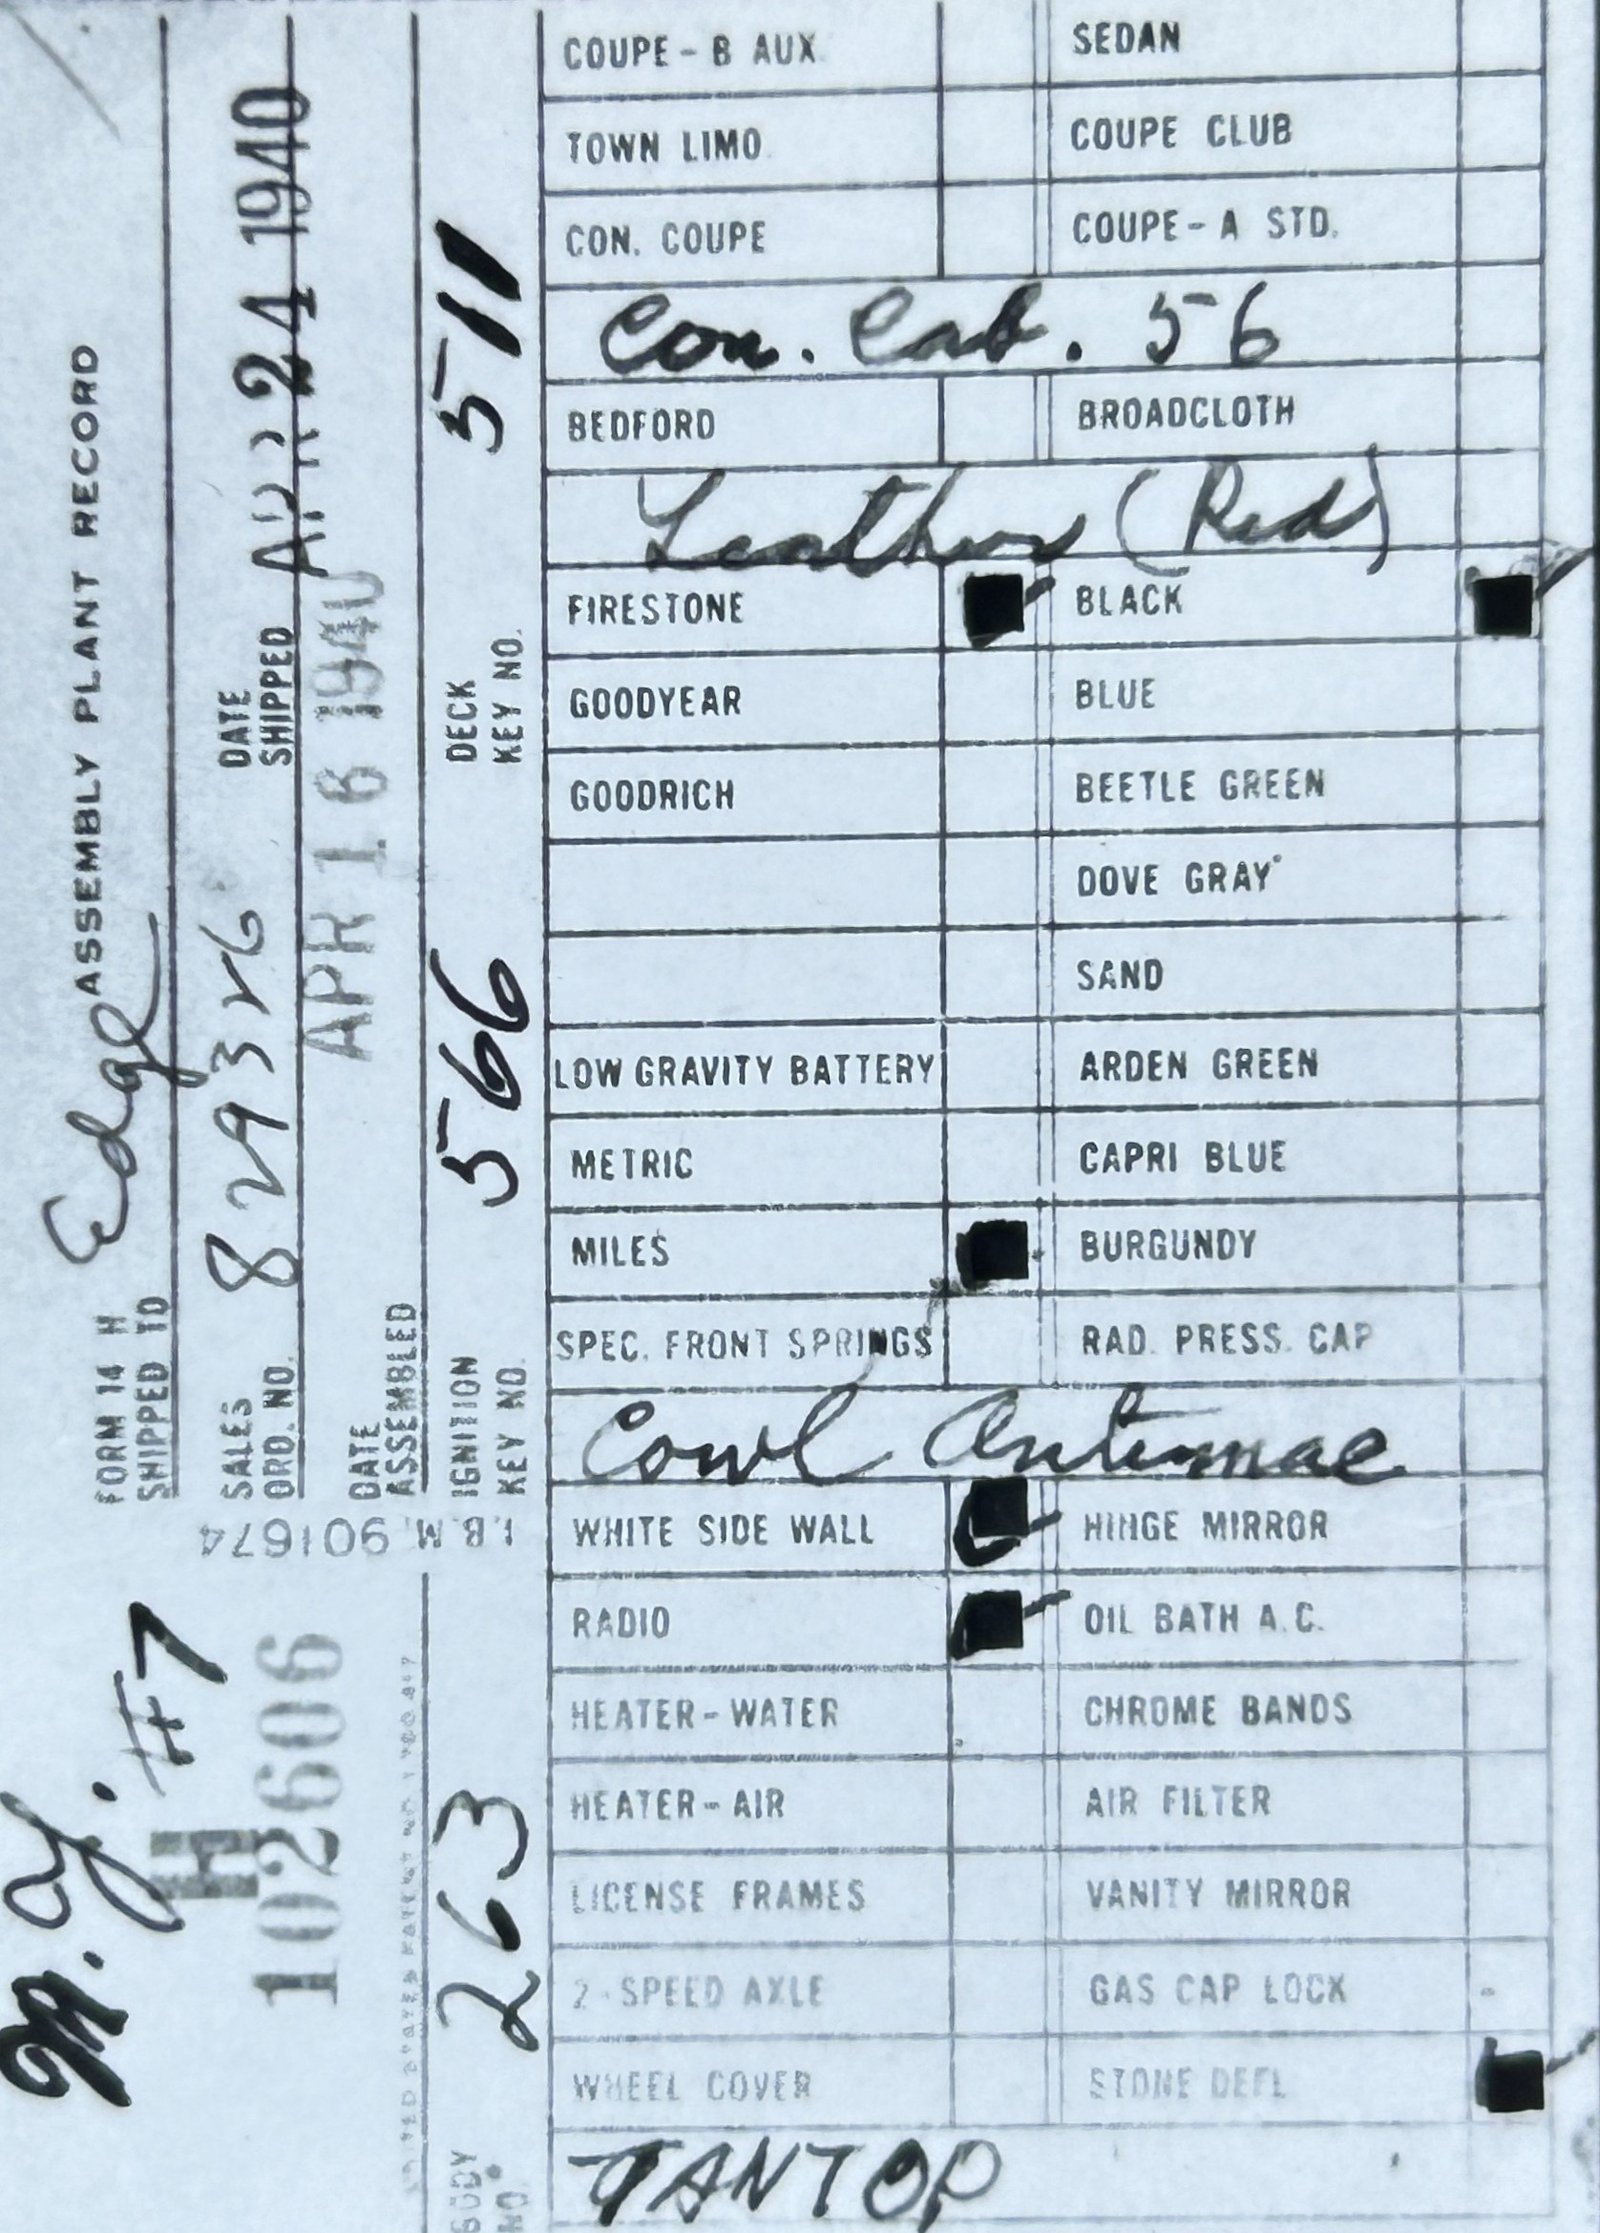 FORM 14 H ASSEMBLY PLANT RECORD
SHIPPED TO Edge
SALES ORD. NO. 829326 DATE SHIPPED APR 24 1940
DATE ASSEMBLED APR 16 1940
IGNITION KEY NO. 566 DECK KEY NO. 511
I.B.M. 901674
#7
H
102606
BODY NO. 263
COUPE - B AUX. SEDAN
TOWN LIMO. COUPE CLUB
CON. COUPE COUPE - A STD.
Con. Cab. 56
BEDFORD BROADCLOTH
Leather (Red)
FIRESTONE BLACK
GOODYEAR BLUE
GOODRICH BEETLE GREEN
DOVE GRAY
SAND
LOW GRAVITY BATTERY ARDEN GREEN
METRIC CAPRI BLUE
MILES BURGUNDY
SPEC. FRONT SPRINGS RAD. PRESS. CAP
Cowl Antinnae
WHITE SIDE WALL HINGE MIRROR
RADIO OIL BATH A.C.
HEATER - WATER CHROME BANDS
HEATER - AIR AIR FILTER
LICENSE FRAMES VANITY MIRROR
2 - SPEED AXLE GAS CAP LOCK
WHEEL COVER STONE DEFL
TAN TOP